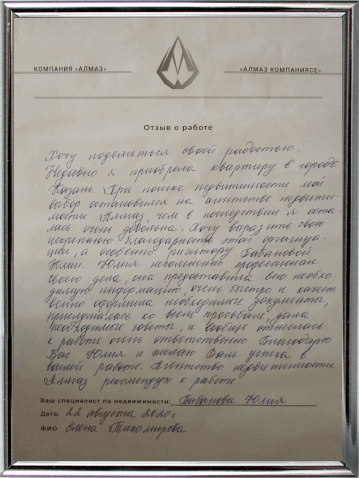 КОМПАНИЯ «АЛМАЗ»
«АЛМАЗ КОМПАНИЯСЕ»
Отзыв о работе
Хочу поделиться своей радостью.
Недавно я приобрела квартиру в городе
Казань. При поиске недвижимости мой
выбор остановился на агентстве недвижи-
мости Алмаз, чем в последствии я оста-
лась очень довольна. Хочу выразить свою
искреннюю благодарность этой организа-
ции, а особенно риэлтору Бабановой
Юлии. Юлия невероятно профессионал
своего дела, она предоставила всю необхо-
димую информацию, очень быстро и качест
венно оформила необходимые документы,
прислушалась ко всем просьбам, дала
необходимые советы, и вообще отнеслась
к работе очень ответственно. Благодарю
Вас Юлия и желаю Вам успеха в
вашей работе. Агентство недвижимости
Алмаз рекомендую к работе
Ваш специалист по недвижимости: Бабанова Юлия
Дата: 22 августа 2020г
ФИО Елена Тихомирова